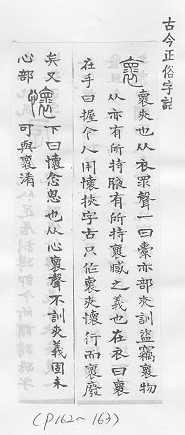 古今正俗字詁
褱 褱夾也从衣眔聲一曰橐亦部夾訓盜竊褱物
从亦有所持腋有所持褱臧之義也在衣曰褱
在手曰握今人用懷挾字古只作褱夾懷行而褱廢
矣又 懷 下曰懷念思也从心褱聲不訓夾義固未
心部 可與褱淆
(P162~163)